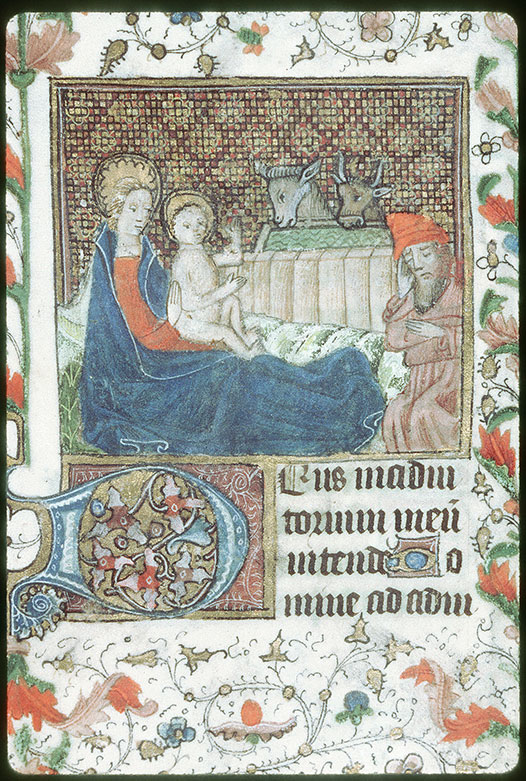 Deus in adiu
torium meū
intende do
mine ad adiu